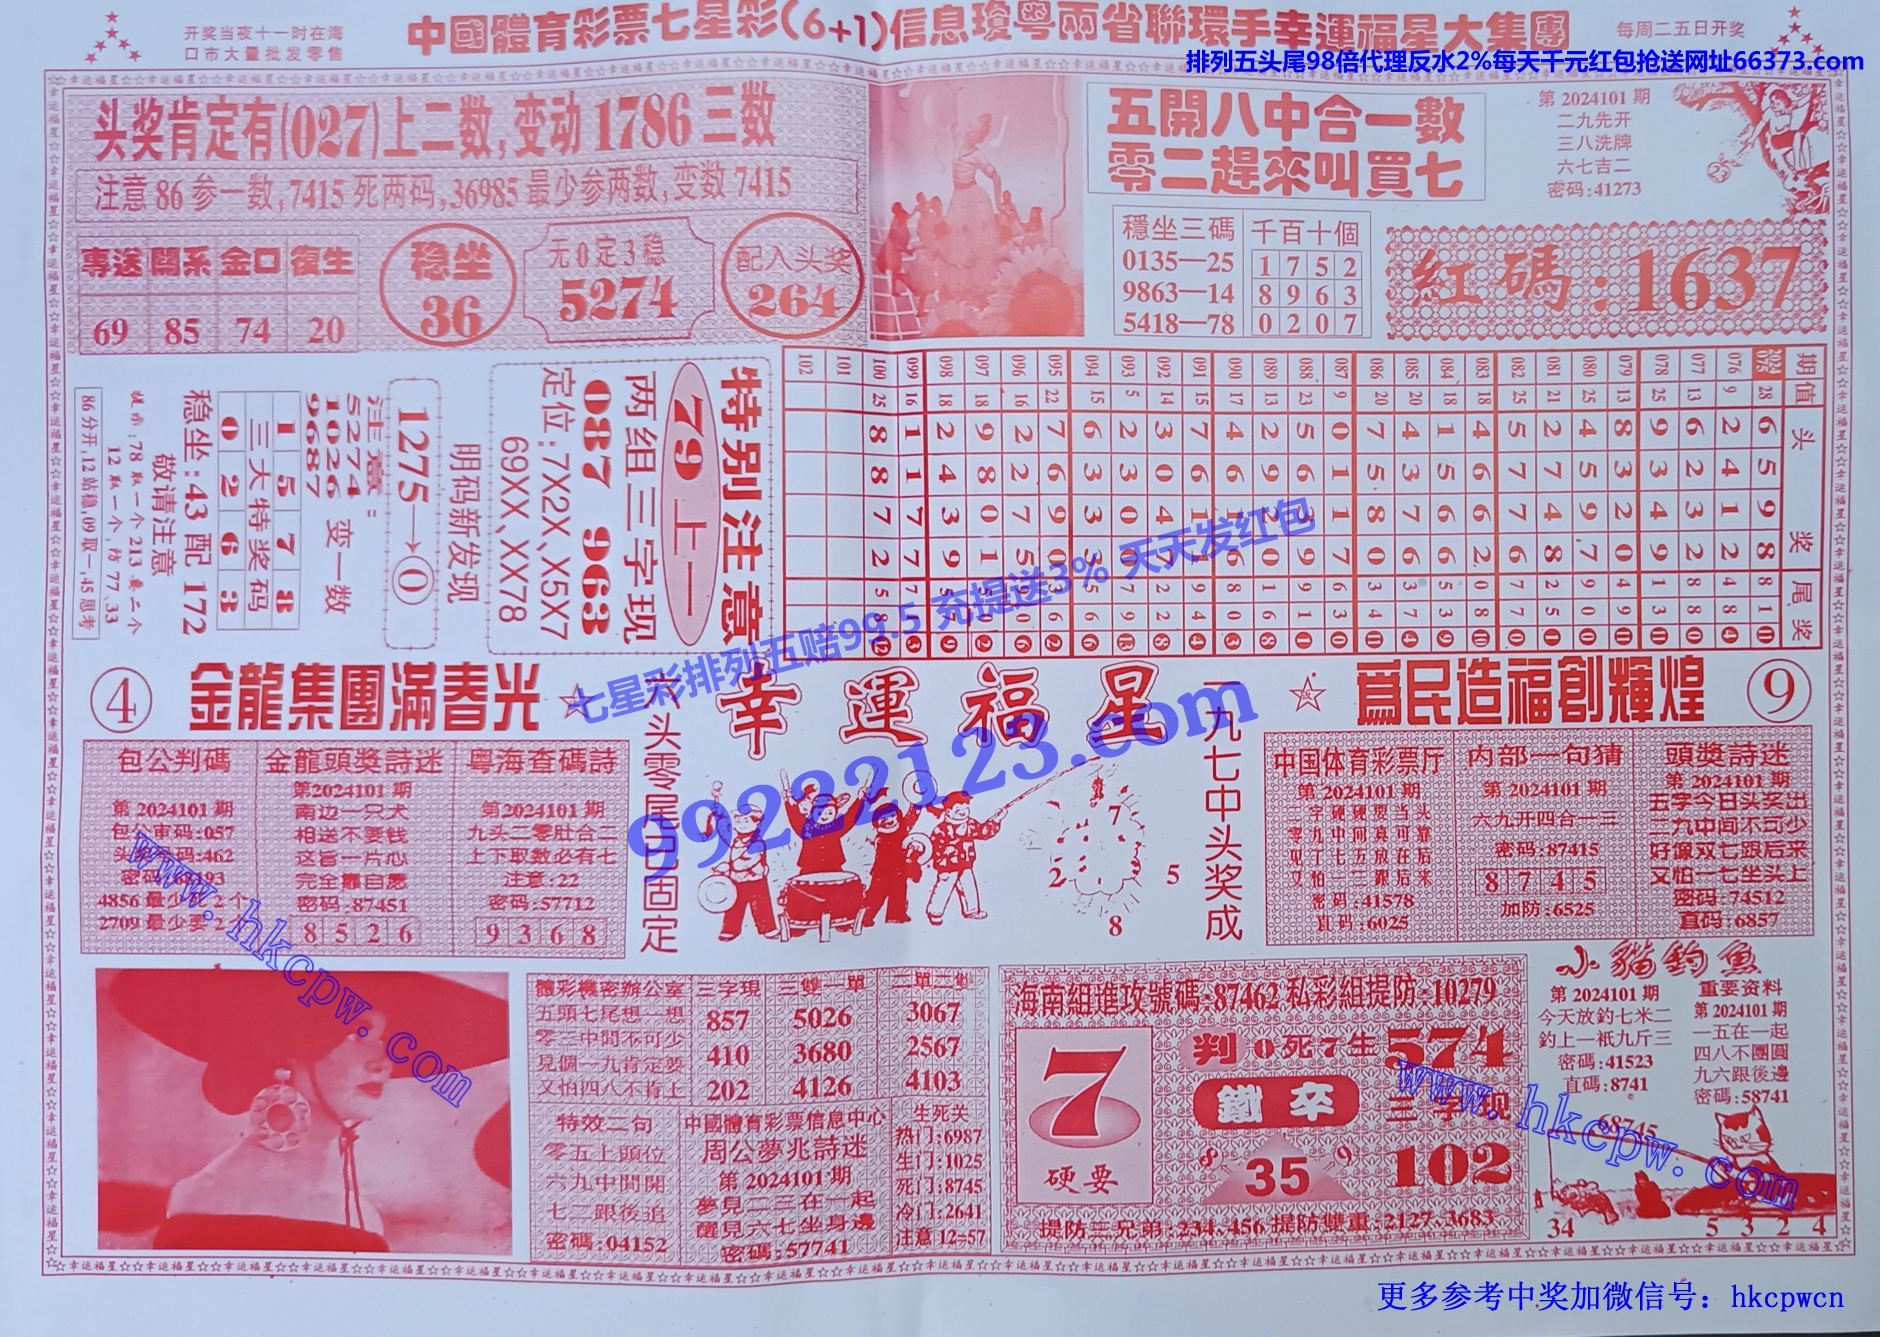 开奖当夜十一时在海
口市大量批发零售
中國體育彩票七星彩(6+1)信息瓊粤兩省聯環手幸運福星大集團
每周二五日开奖
排列五头尾98倍代理反水2%每天千元红包抢送网址66373.com
头奖肯定有(027)上二数,变动1786三数
注意86参一数,7415死两码,36985最少参两数,变数7415
專送 關系 金口 復生
69 85 74 20
稳坐
36
无0定3稳
5274
配入头奖
264
五開八中合一數
零二趕來叫買七
第2024101期
二九先开
三八洗牌
六七吉二
密码:41273
穩坐三碼
0135—25
9863—14
5418—78
千百十個
1 7 5 2
8 9 6 3
0 2 0 7
紅碼:1637
特别注意
79上一
两组三字现
087 963
定位:7X2X、X5X7
69XX、XX78
明码新发现
1275→0
注意:
5274
1026
9687
变一数
1 5 7 8
三大特奖码
0 2 6 3
稳坐:43配172
敬请注意
提示:78取一个213要二个
12取一个,防77、33
86分开,12站稳,09取一,45思考
期 值 头 奖 尾 奖
2024
075 28 6 5 9 8 8 1 11
076 9 2 4 1 2 4 8 4
077 13 6 2 3 2 8 8 0
078 25 9 3 4 9 1 3
079 13 8 3 2 0 4 9
080 24 4 5 9 7 0 0
081 21 2 7 4 8 2 5 0
082 25 5 7 7 6 7 7 0
083 18 4 6 6 2 0 8
084 18 1 5 6 6 5 3 9
085 20 4 3 7 6 3 7 4
086 20 7 5 8 0 3 4
087 9 0 1 1 7 6 3 0
088 23 5 6
089 13 2 9
090 17 4 6
091 15 7 6
092 14 3 0 4 7
093 5 2 3 0 0
094 15 6 3 3 3
095 22 7 6 9 0
096 16 2 2 7 5
097 18 9 8 0 1
098 18 2 4 3 9
099 16 1 1 7 7
100 25 8 8 7 2 5 8 12
101
102
七星彩排列五赔99.5 充提送3% 天天发红包
99222123.com
④
金龍集團滿春光
六头零尾四固定
幸運福星
一九七中头奖成
爲民造福創輝煌
⑨
7
2
5
8
包公判碼
第2024101期
包公审码:057
4856最少死2个
2709最少要2个
金龍頭獎詩迷
第2024101期
南边一只犬
相送不要钱
这旨一片心
完全靠自愿
密码:87451
8 5 2 6
粤海查碼詩
第2024101期
九头二零肚合二
上下取数必有七
注意:22
密码:57712
9 3 6 8
中国体育彩票厅
第2024101期
二字硬硬要当头
零九中间真可靠
见丁七五放在后
又怕一二跟后来
密码:41578
直码:6025
内部一句猜
第2024101期
六九开四合一三
密码:87415
8 7 4 5
加防:6525
頭獎詩迷
第2024101期
五字今日头奖出
二九中间不可少
好像双七跟后来
又怕一七坐头上
密码:74512
直码:6857
www.hkcpw.com
體彩機密辦公室
五頭七尾想一想
零二中間不可少
見個一九肯定要
又怕四八不肯上
三字現
857
410
202
三雙一單
5026
3680
4126
二單二雙
3067
2567
4103
特效二句
零五上頭位
六九中間開
七二跟後追
密碼:04152
中國體育彩票信息中心
周公夢兆詩迷
第2024101期
夢見二三在一起
醒見六七坐身邊
密碼:57741
生死关
热门:6987
生门:1025
死门:8745
冷门:2641
注意12=57
海南組進攻號碼:87462私彩組提防:10279
7
硬要
判0死7生574
鐵卒
三字现
8 35 9
102
提防三兄弟:234、456提防雙重:2127、3683
小貓釣魚
第2024101期
今天放釣七米二
釣上一衹九斤三
密碼:41523
直碼:8741
重要资料
第2024101期
一五在一起
四八不團圓
九六跟後邊
密碼:58741
68745
34
5 3 2 4
www.hkcpw.com
更多参考中奖加微信号：hkcpwcn